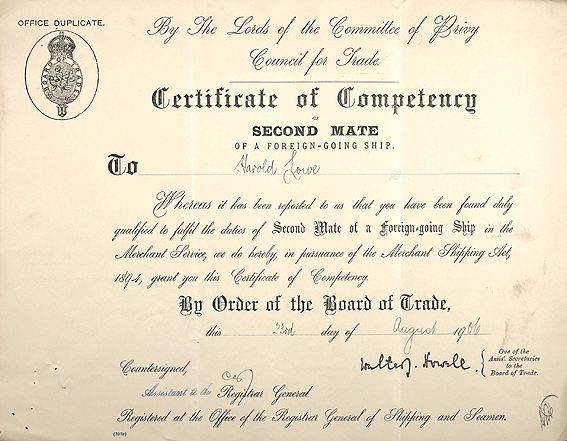 OFFICE DUPLICATE.
BOARD OF TRADE
By The Lords of the Committee of Privy
Council for Trade.
Certificate of Competency
as
SECOND MATE
OF A FOREIGN-GOING SHIP.
To Harold Lowe
Whereas it has been reported to us that you have been found duly
qualified to fulfil the duties of Second Mate of a Foreign-going Ship in the
Merchant Service, we do hereby, in pursuance of the Merchant Shipping Act,
1894, grant you this Certificate of Competency.
By Order of the Board of Trade,
this 23rd day of August 1906
Walter J. Howell. { One of the
Assist. Secretaries
to the
Board of Trade.
Countersigned,
Assistant to the Registrar General
Registered at the Office of the Registrar General of Shipping and Seamen.